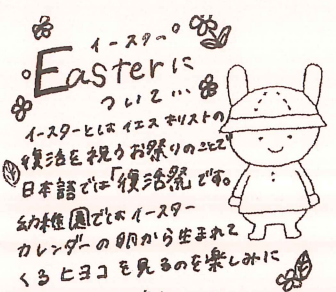 イースター
Easterに
ついて…
イースターとはイエスキリストの
復活を祝うお祭りのことで
日本語では「復活祭」です。
幼稚園ではイースター
カレンダーの卵から生まれて
くるヒヨコを見るのを楽しみに